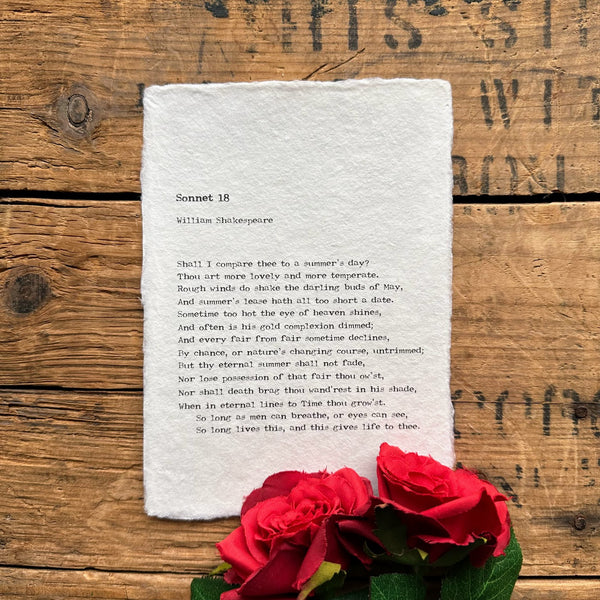 Sonnet 18
William Shakespeare
Shall I compare thee to a summer's day?
Thou art more lovely and more temperate.
Rough winds do shake the darling buds of May,
And summer's lease hath all too short a date.
Sometime too hot the eye of heaven shines,
And often is his gold complexion dimmed;
And every fair from fair sometime declines,
By chance, or nature's changing course, untrimmed;
But thy eternal summer shall not fade,
Nor lose possession of that fair thou ow'st,
Nor shall death brag thou wand'rest in his shade,
When in eternal lines to Time thou grow'st.
So long as men can breathe, or eyes can see,
So long lives this, and this gives life to thee.